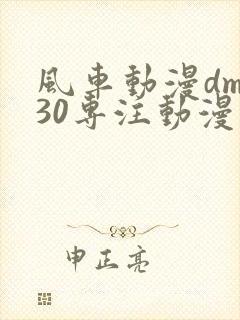 風車動漫dm
30專注動漫
申正亮